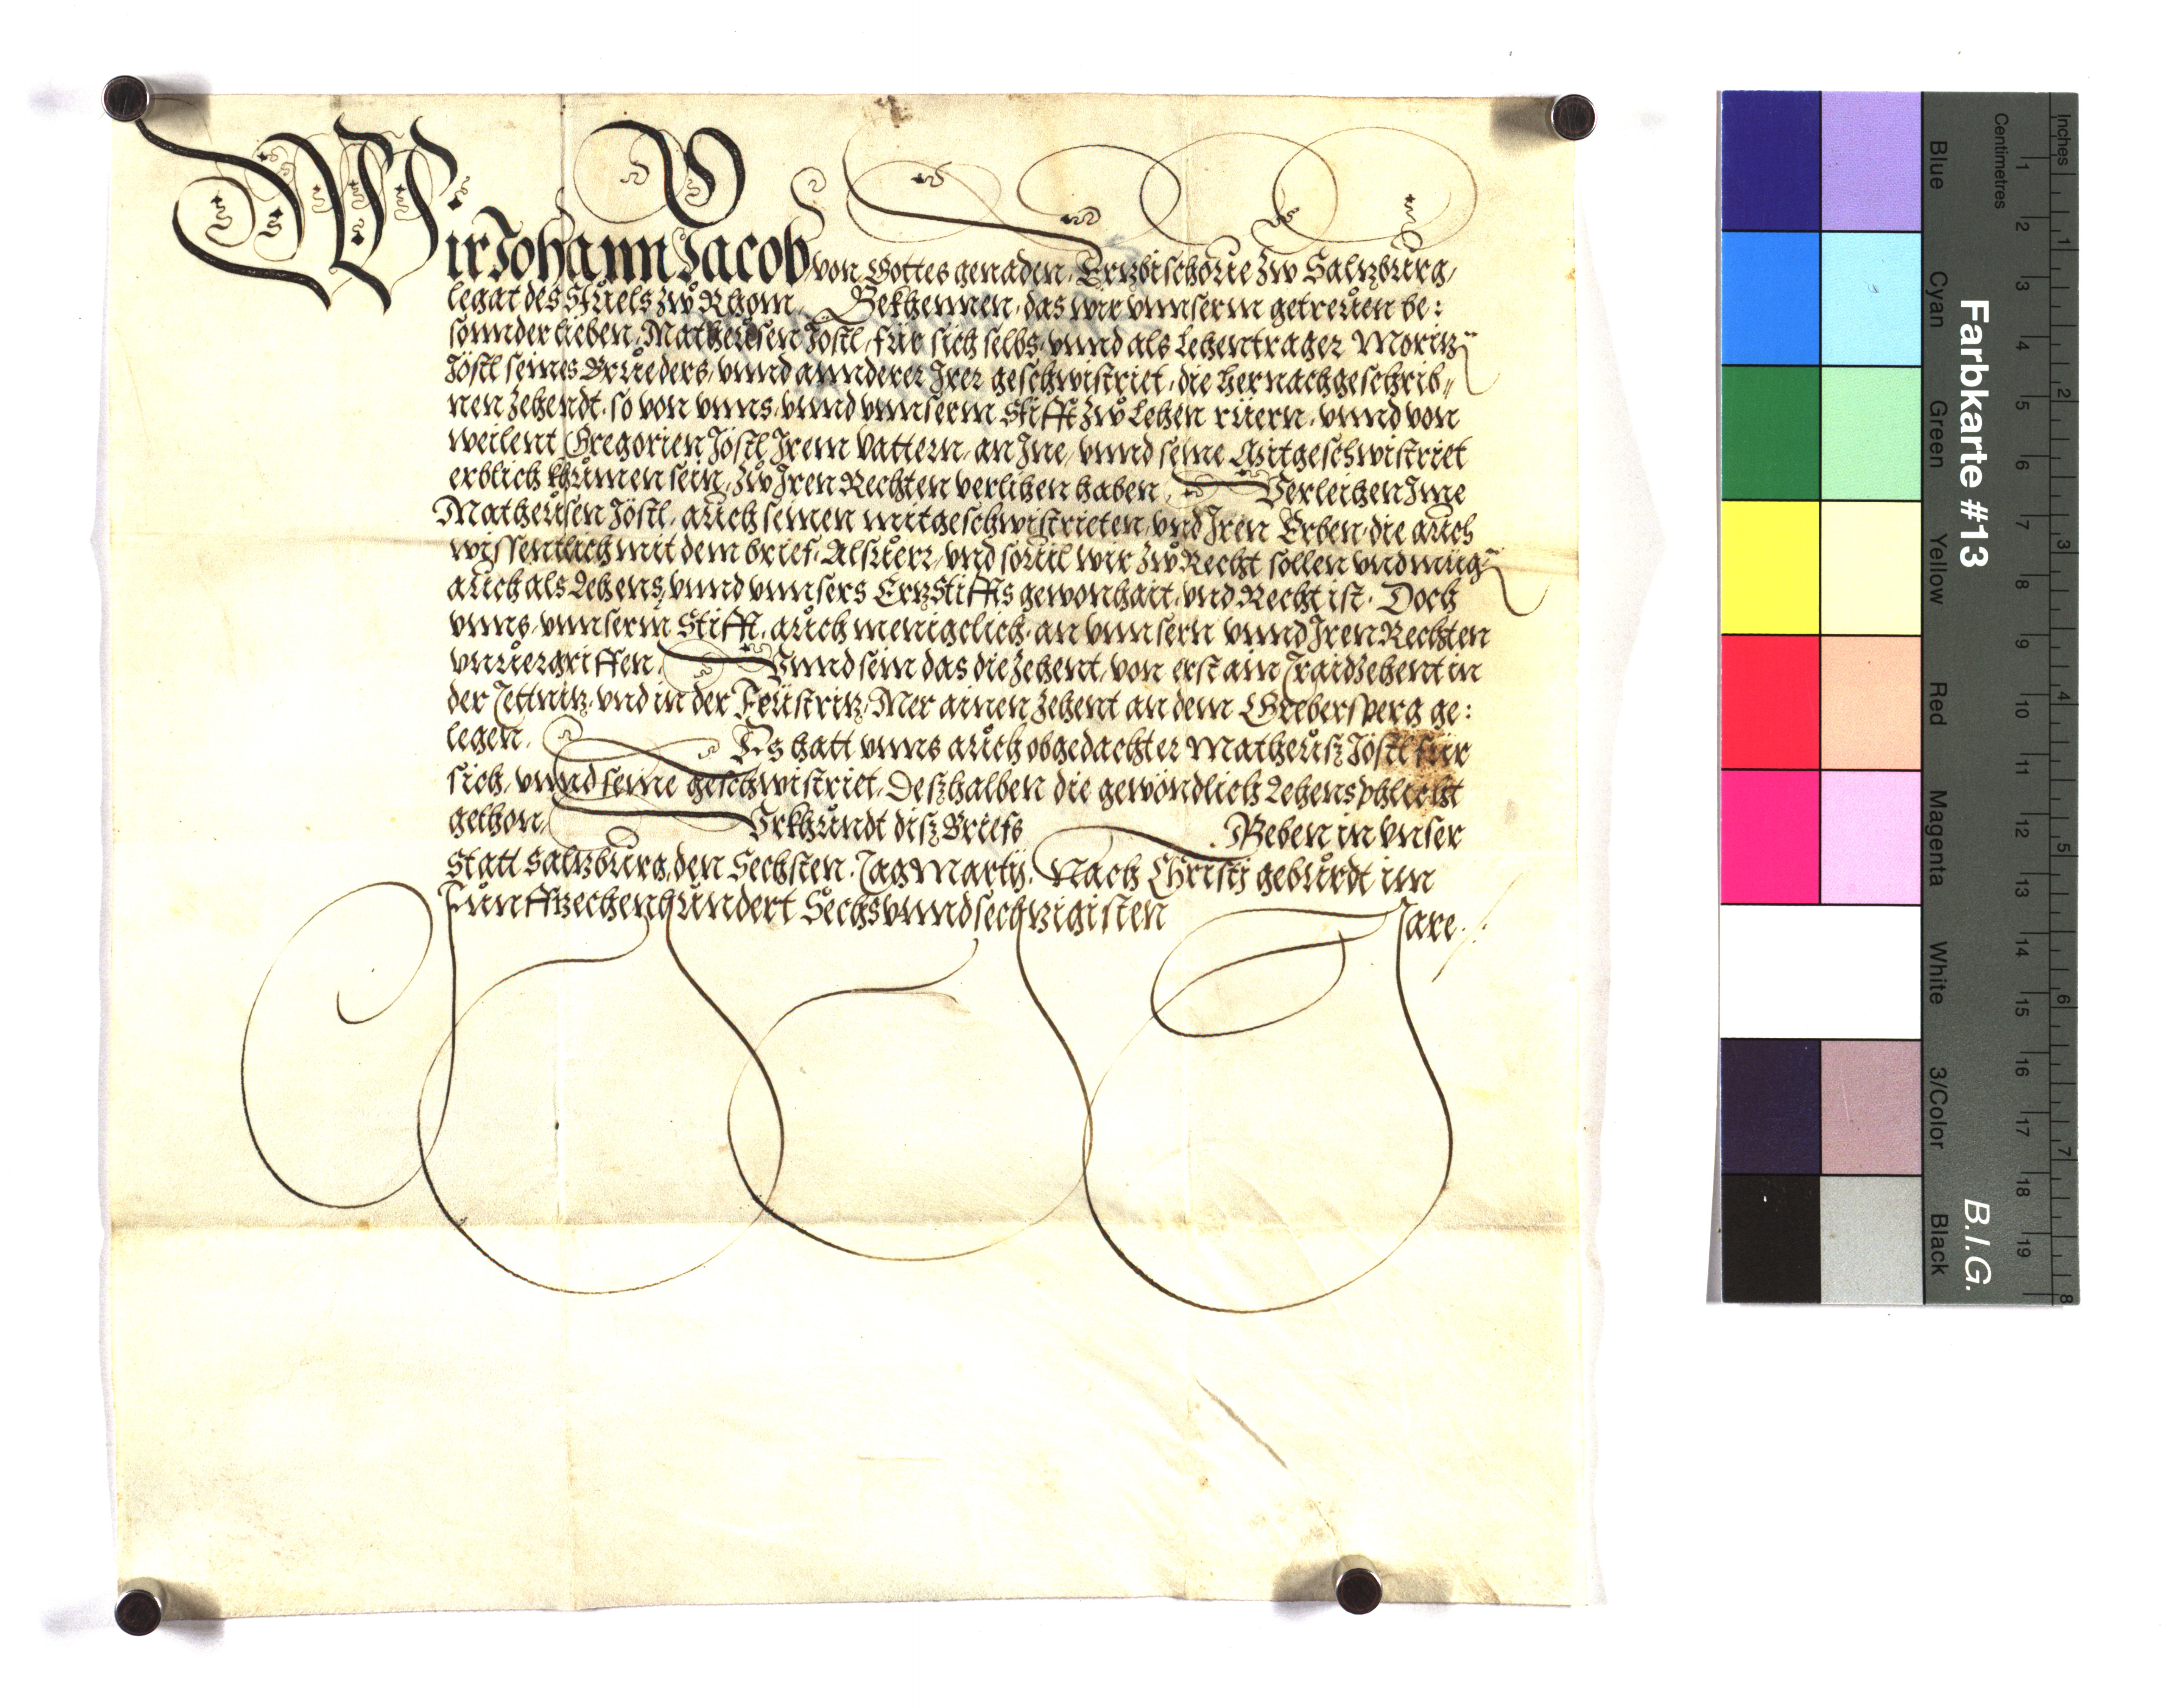 Wir Johann Jacob von Gottes genaden, Ertzbischoue zw Saltzburg,
legat des Stuels zw Rhom, Bekhennen, das wir vnnserm getreuen be:
sonnder lieben, Matheusen Jöstl, für sich selbs, vnnd als Lehentrager Moritz
Jöstl seines Brueders, vnnd annderer Irer geschwistriet, die hernachgeschrib„
nen Zehendt, so von vnns, vnnd vnnserm Stifft zw Lehen rüern, vnnd von
weilent Gregorien Jöstl Irem Vattern, an Ine, vnnd seine Mitgeschwistriet
erblich khumen sein, zw Iren Rechten verlihen haben, Verleihen Ime
Matheusen Jöstl, auch seinen mitgeschwistrieten, vnd Iren Erben, die auch
wissentlich mit dem brief, Alsuerr, vnd souil wir zw Recht sollen vnd müg
auch als Lehens, vnnd vnnsers ErtzStiffts gewonhait, vnd Recht ist. Doch
vnns, vnnserm Stifft, auch menigclich, an vnnsern vnnd Iren Rechten
vnuergriffen, Vnnd sein das die Zehent, von erst ain Traidzehent in
der Tettnitz, vnd in der Feustritz, Mer ainen Zehent an dem Grebersperg ge:
legen. Es hatt vnns auch obgedachter Matheusz Jöstl für
sich, vnnd seine geschwistriet, Deszhalben die gewondlich Lehensphlicht
gethon, Vrkhundt disz Briefs Geben in vnser
Statt Saltzburg, den Sechsten Tag Martij. Nach Christj geburdt im
Funffzechenhundert Sechsvnndsechtzigisten Jare.
Farbkarte #13
B.I.G.
Inches 1 2 3 4 5 6 7 8
Centimetres 1 2 3 4 5 6 7 8 9 10 11 12 13 14 15 16 17 18 19
Blue
Cyan
Green
Yellow
Red
Magenta
White
3/Color
Black